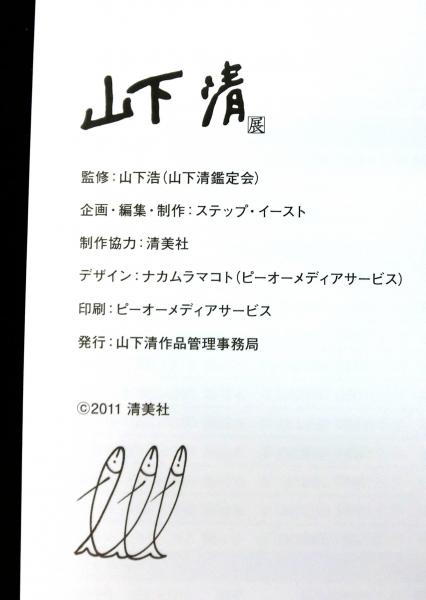 山下清展
監修：山下浩（山下清鑑定会）
企画・編集・制作：ステップ・イースト
制作協力：清美社
デザイン：ナカムラマコト（ピーオーメディアサービス）
印刷：ピーオーメディアサービス
発行：山下清作品管理事務局
©2011 清美社